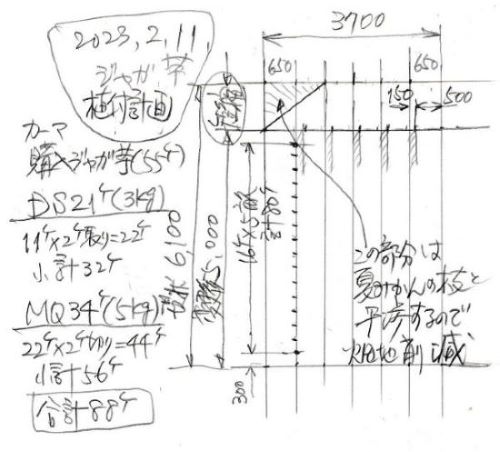 2023,2,11,
ジャガ芋
植付計画
カーマ
購入ジャガ芋(55ケ)
DS21ケ(3kg)
11ケ×2ケ取り=22ケ
小計32ケ
MQ34ケ(5kg)
22ケ×2ケ切り=44ケ
小計56ケ
合計88ケ
3700
650
650
150
500
6,100
5,000
16ケ×5前
計80ケ
300
この部分は
夏みかんの枝と
干渉するので
畑地削減